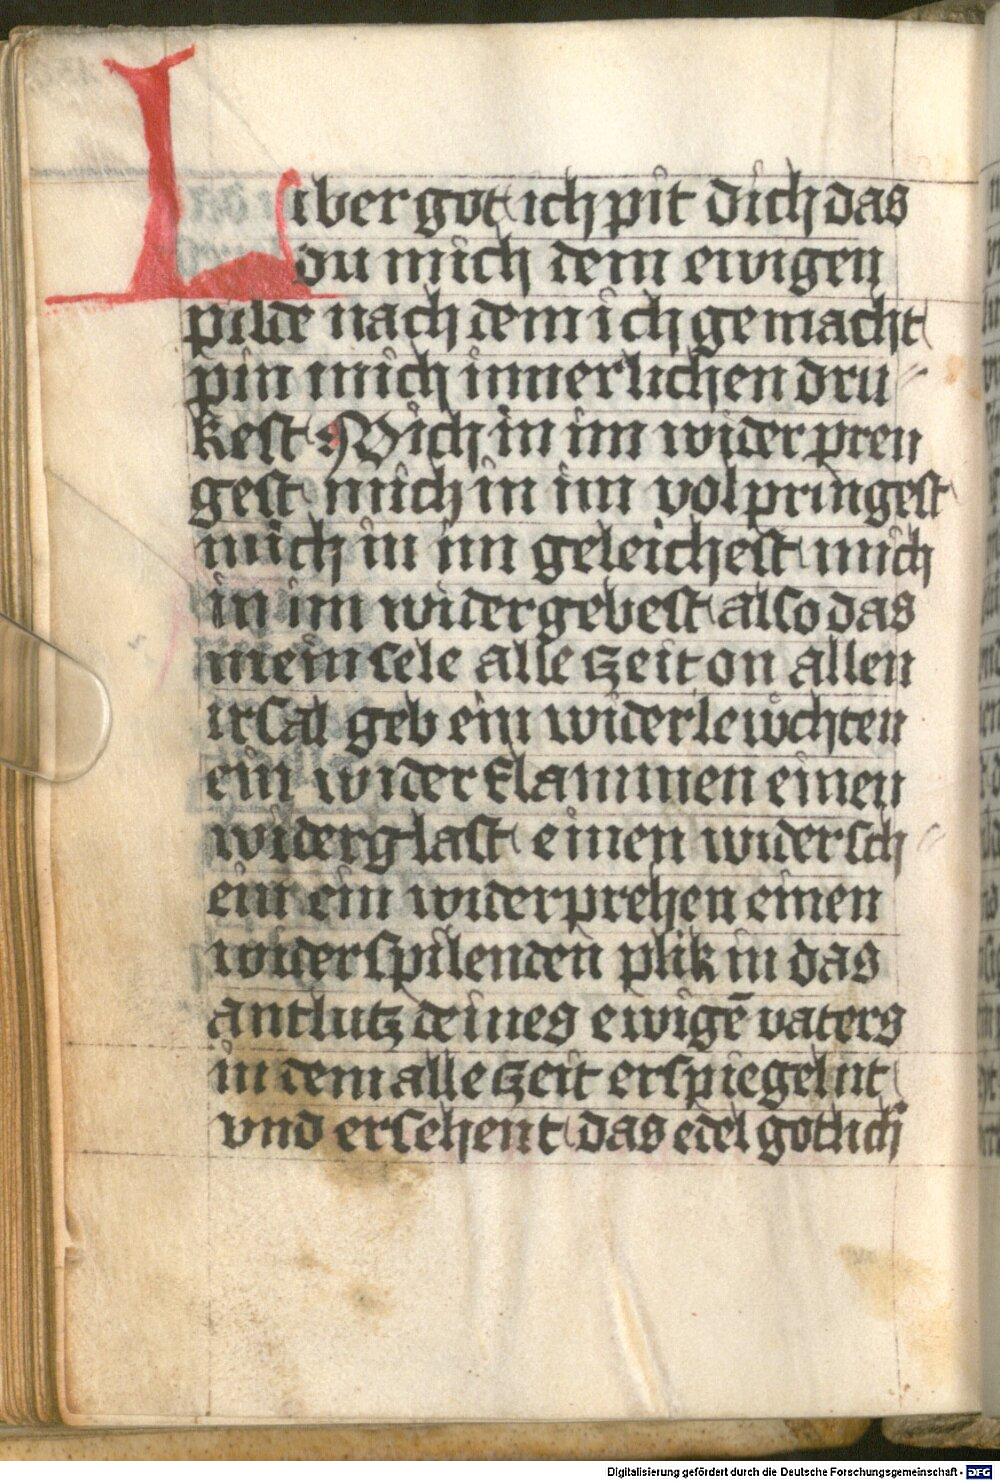 Liber got ich pit dich das
du mich dem ewigen
pilde nach dem ich gemacht
pin mich innerlichen dru
kest Mich in im wider pren
gest mich in im volpringest
mich in im geleichest mich
in im widergebest also das
mein sele alle zeit on allen
irsal geb ein widerlewchten
ein widerflammen einen
widerglast einen widersch
ein ein widerprehen einen
widerspilenden plik in das
antlutz deines ewigē vaters
in dem alle zeit erspiegelnt
vnd ersehent das edel gotlich
Digitalisierung gefördert durch die Deutsche Forschungsgemeinschaft - DFG